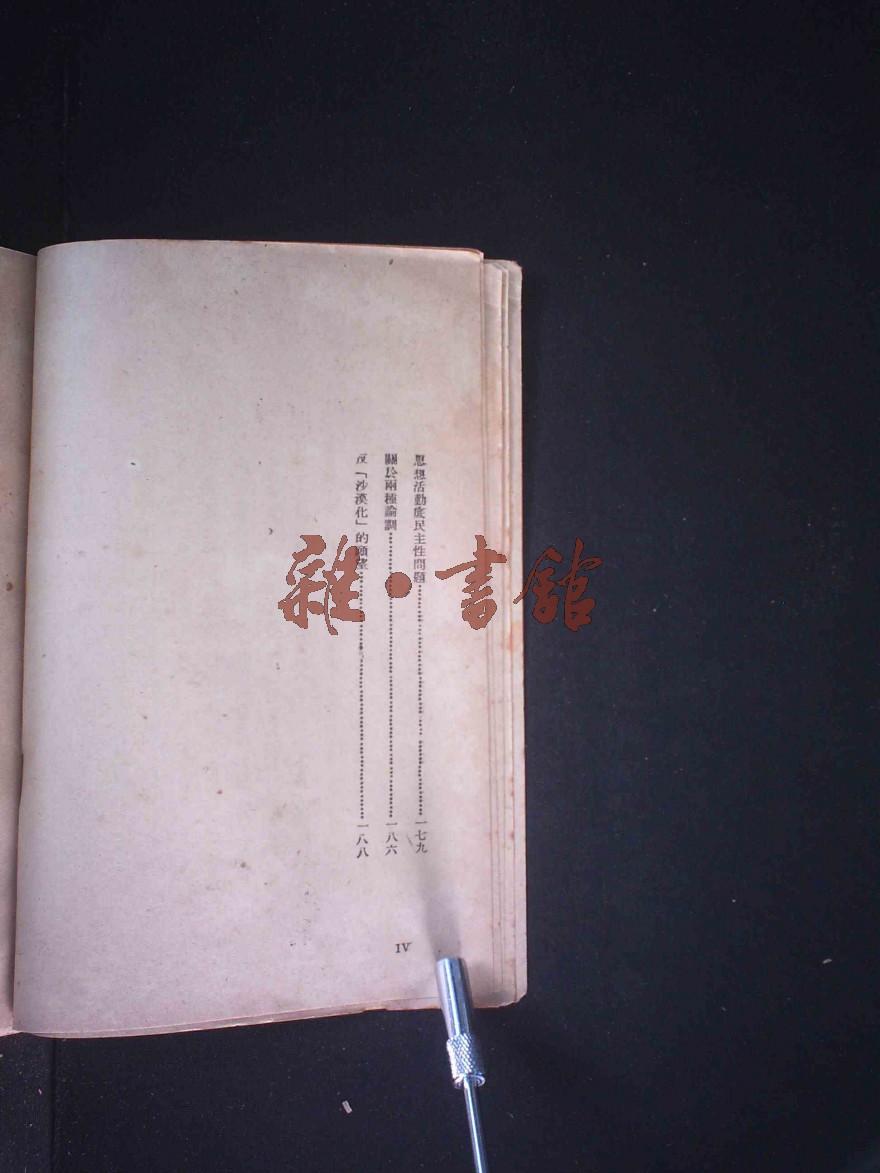 思想活動底民主性問題……………………一七九
關於兩種論調……………………一八六
反「沙漠化」的願望……………………一八八
IV
雜·書館